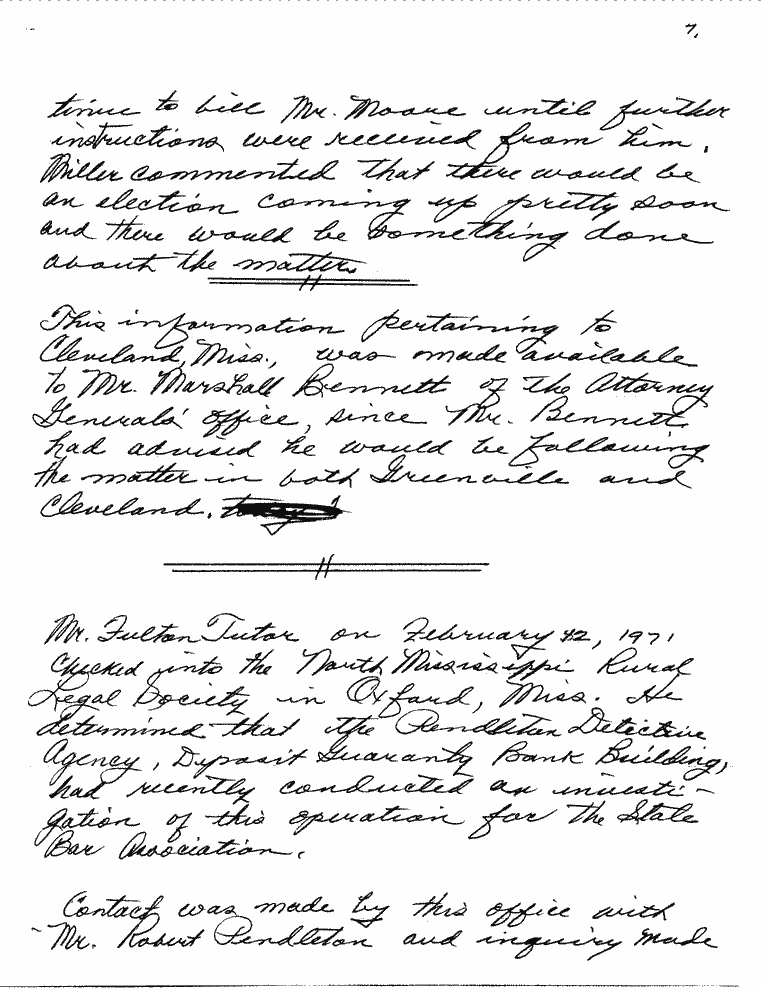 7.
tinue to bill Mr. Moore until further
instructions were received from him.
Miller commented that there would be
an election coming up pretty soon
and there would be something done
about the matter.
This information pertaining to
Cleveland, Miss., was made available
to Mr. Marshall Bennett of the Attorney
Generals' office, since Mr. Bennett
had advised he would be following
the matter in both Greenville and
Cleveland.
Mr. Fulton Tutor on February 12, 1971
checked into the North Mississippi Rural
Legal Society in Oxford, Miss. He
determined that the Pendleton Detective
Agency, Deposit Guaranty Bank Building,
had recently conducted an investi-
gation of this operation for the State
Bar Association.
Contact was made by this office with
Mr. Robert Pendleton and inquiry made